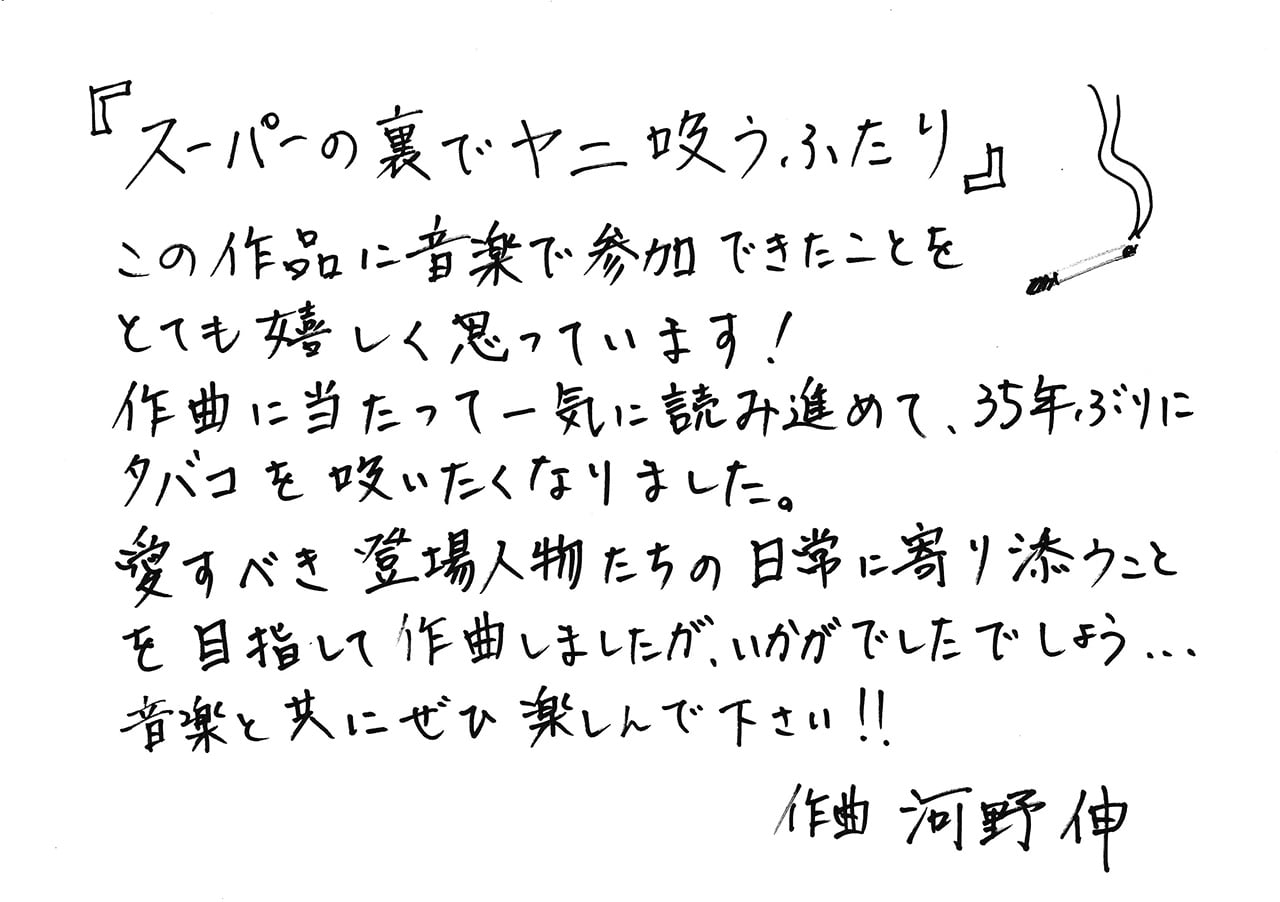 『スーパーの裏でヤニ吸うふたり』
この作品に音楽で参加できたことを
とても嬉しく思っています!
作曲に当たって一気に読み進めて、35年ぶりに
タバコを吸いたくなりました。
愛すべき登場人物たちの日常に寄り添うこと
を目指して作曲しましたが、いかがでしたでしょう...
音楽と共にぜひ楽しんで下さい!!
作曲 河野伸